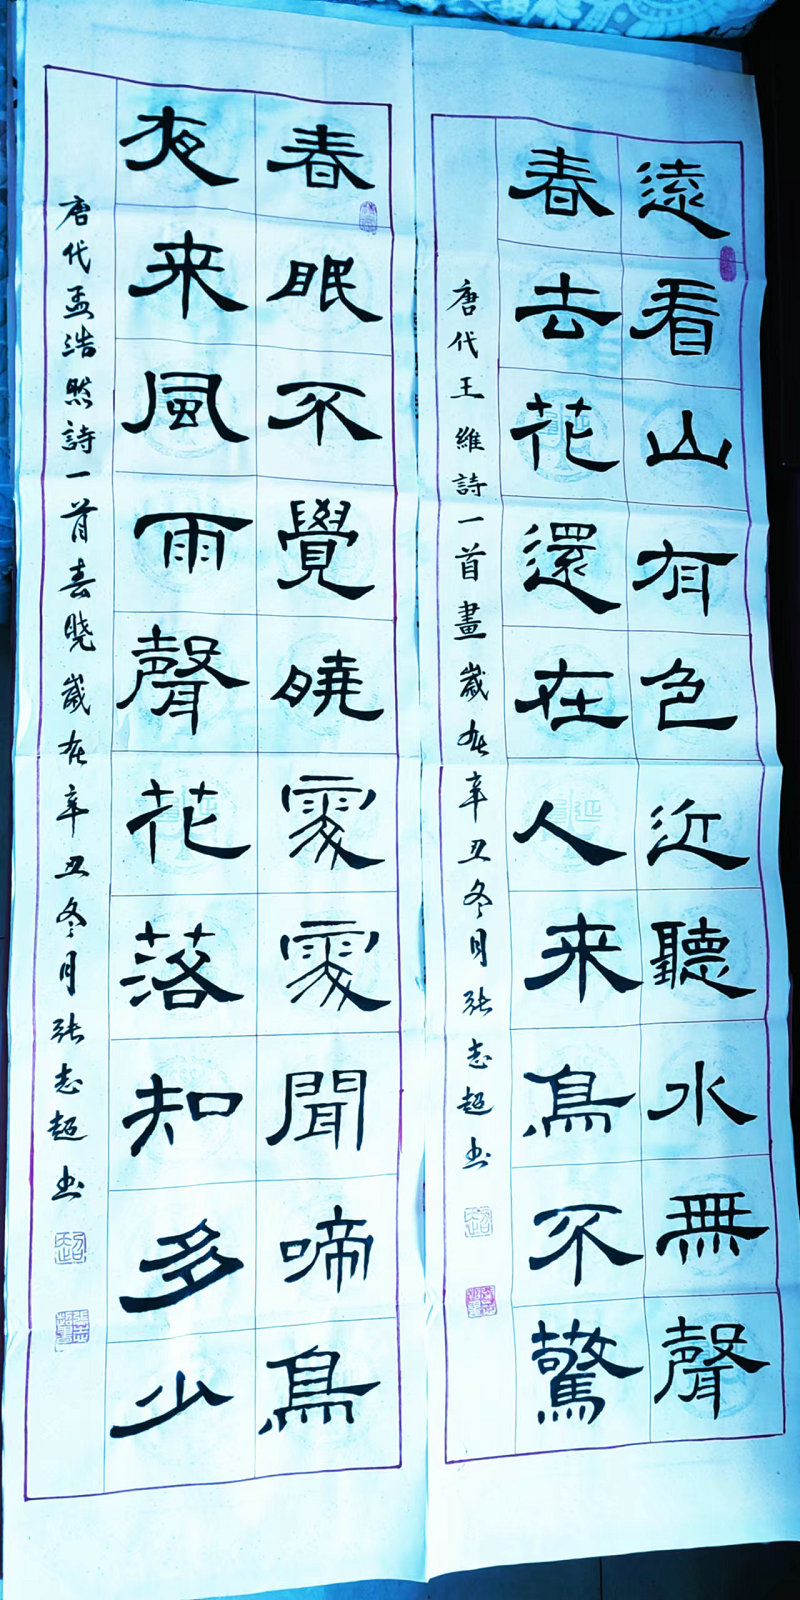 遠看山有色近聽水無聲
春去花還在人来鳥不驚
唐代王維詩一首畫歲在辛丑冬月張志超书
春眠不覺曉處處聞啼鳥
夜来風雨聲花落知多少
唐代孟浩然詩一首春曉歲在辛丑冬月張志超书